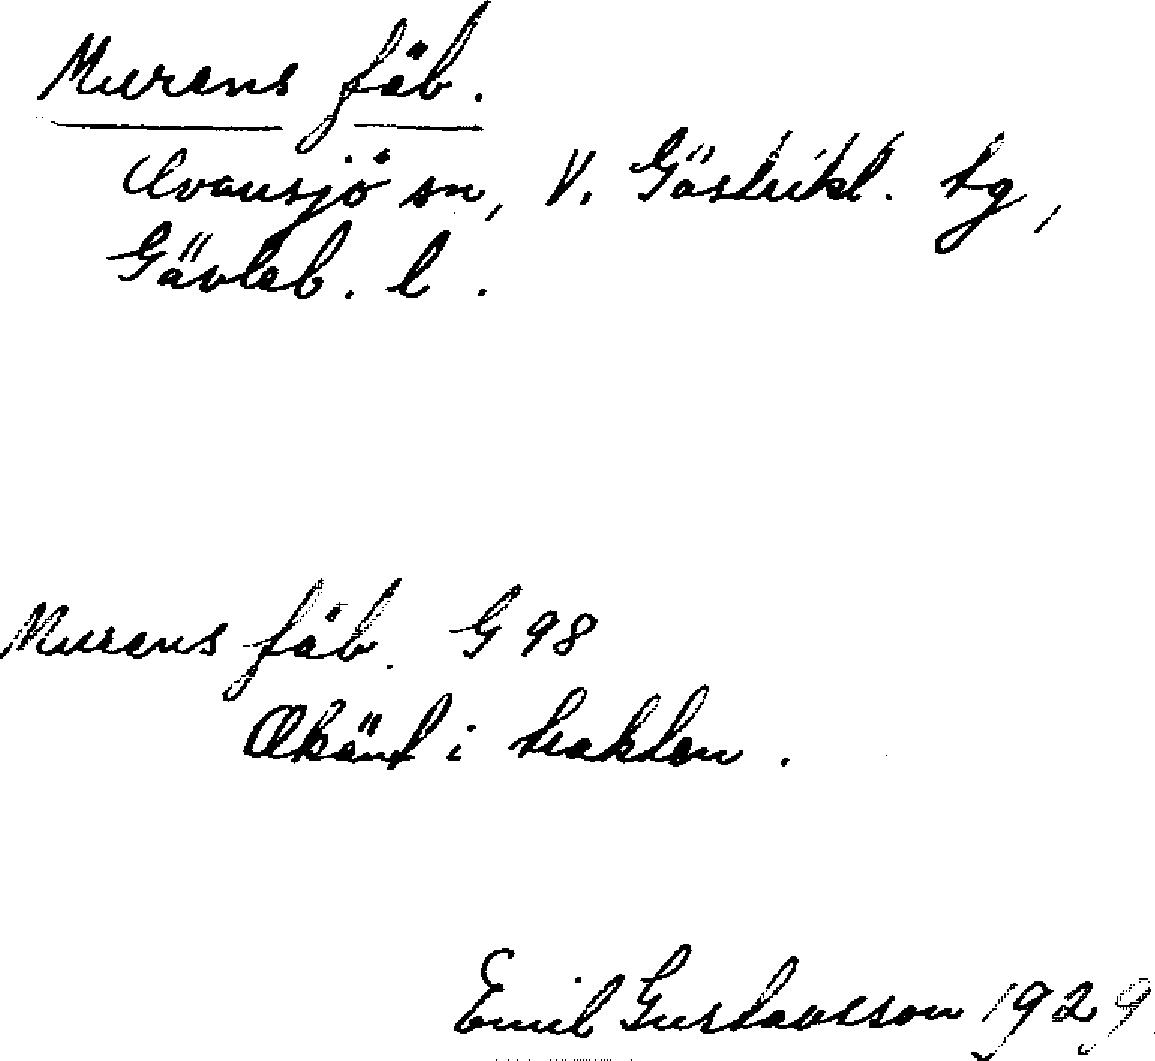 Murens fäb.
Ovansjö sn, V. Gästrikl. tg,
Gävleb. l.
Murens fäb. G 98
Okänt i trakten.
Emil Gustavsson 1929